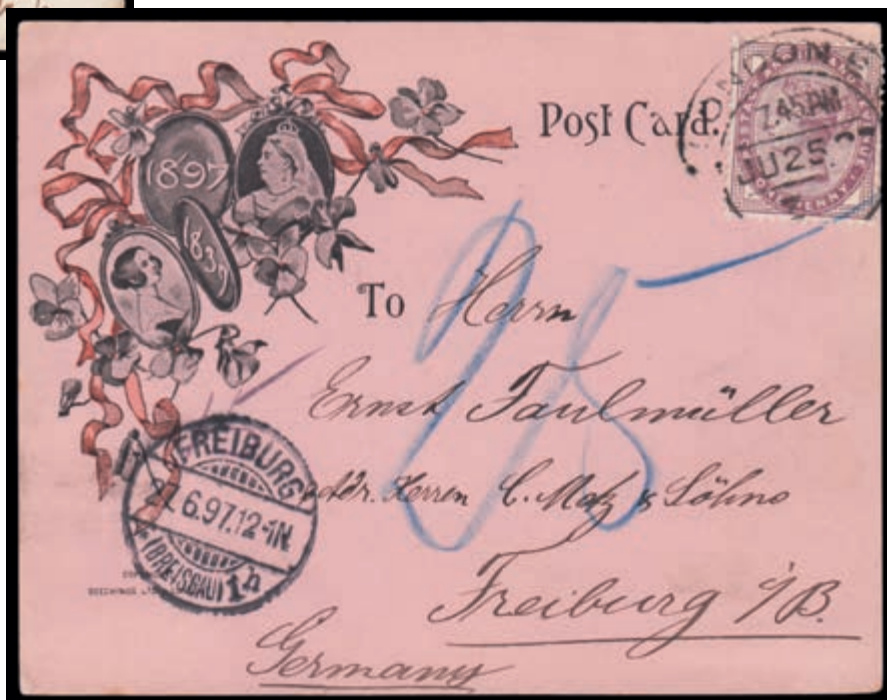 1897
1837
Post Card.
7.45 PM
JU 25
ONE PENNY
To Herrn
Ernst Faulmüller
Adr. Herren C. Metz & Söhne
Freiburg i/B.
Germany
25
FREIBURG
27.6.97.12-1N.
(BREISGAU) 1b